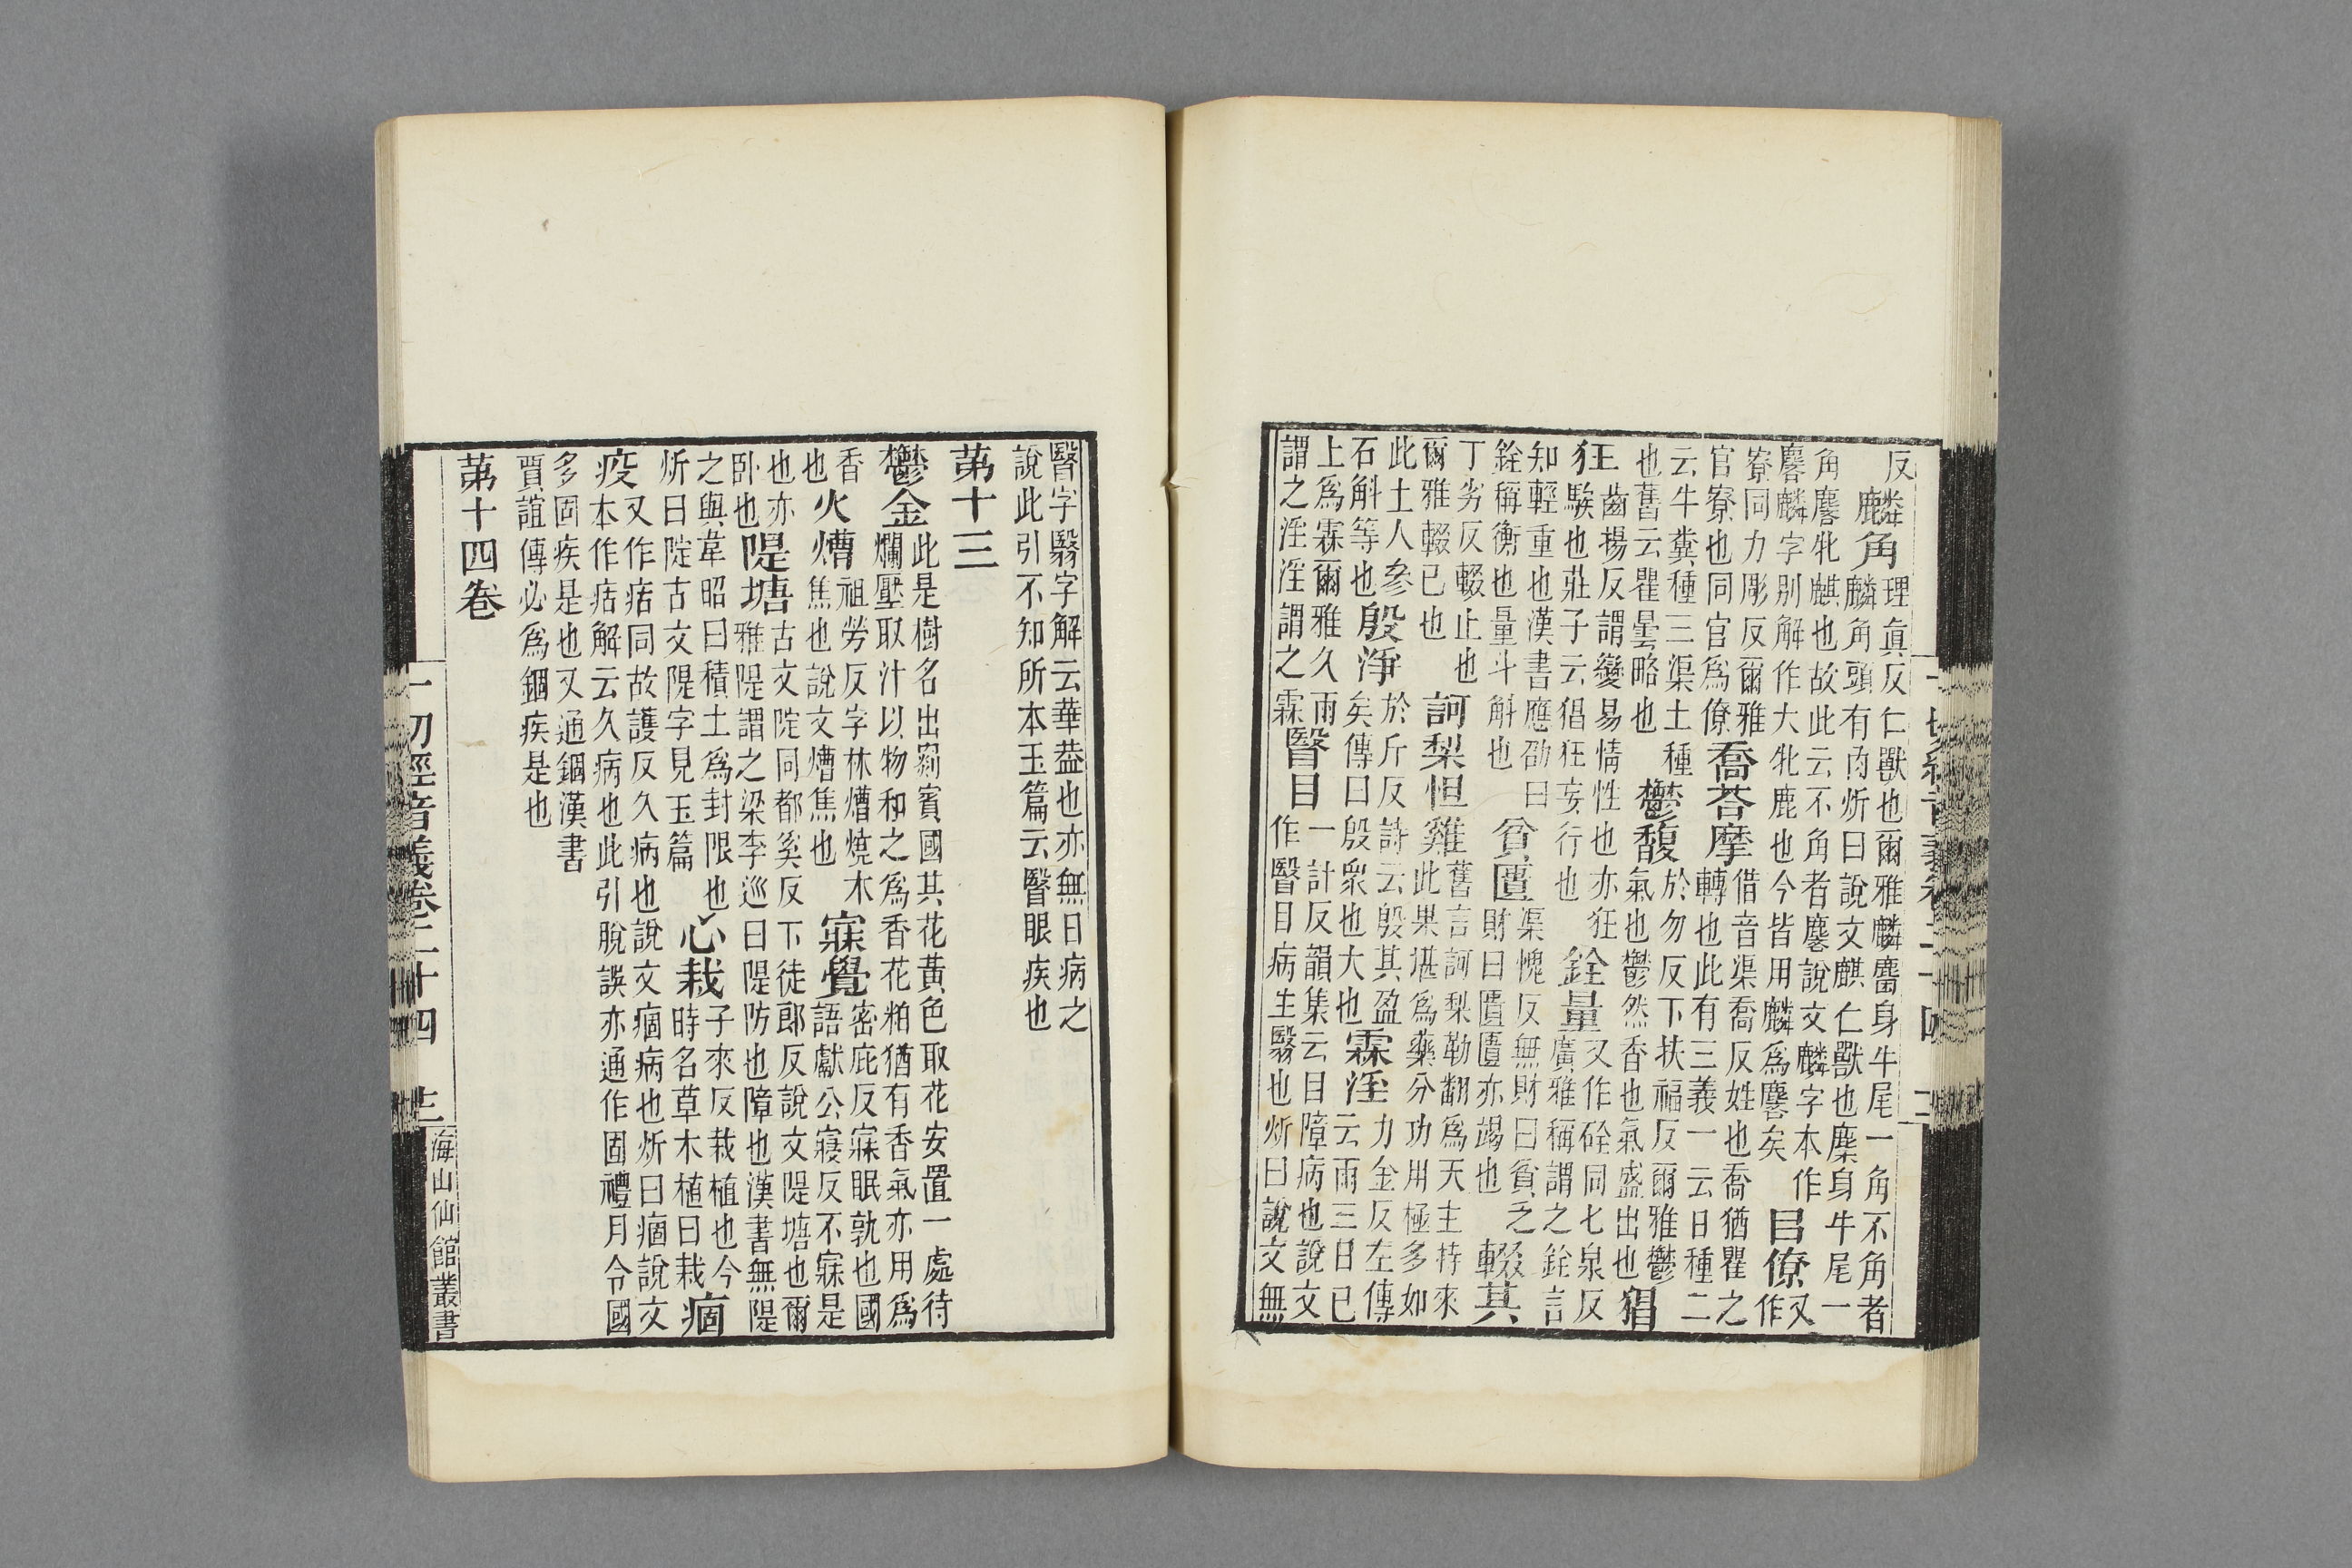 反麟角理眞反仁獸也爾雅麟麕身牛尾一角不角者
麟角頭有肉炘曰說文麒仁獸也麋身牛尾一
角麐牝麒也故此云不角者麐說文麟字本作
麐麟字别解作大牝鹿也今皆用麟爲麐矣吕僚又作
寮同力彫反爾雅
官寮也同官爲僚喬荅摩借音渠喬反姓也喬猶瞿之
轉也此有三義一云日種二
云牛糞種三渠土種
也舊云瞿曇略也鬱馥於勿反下扶福反爾雅鬱
氣也鬱然香也氣盛出也猖
狂齒揚反謂變易情性也亦狂
騃也莊子云猖狂妄行也銓量又作硂同七泉反
廣雅稱謂之銓言
知輕重也漢書應劭曰
銓稱衡也量斗斛也貧匱渠愧反無財曰貧乏
財曰匱匱亦竭也輟其
丁劣反輟止也
爾雅輟已也訶梨怛雞舊言訶梨勒翻爲天主持來
此果堪爲藥分功用極多如
此土人參
石斛等也殷淨於斤反詩云殷其盈
矣傳曰殷衆也大也霖淫力金反左傳
云雨三日已
上爲霖爾雅久雨
謂之淫淫謂之霖瞖目一計反韻集云目障病也說文
作瞖目病生翳也炘曰說文無
一切經音義卷二十四
瞖字翳字解云華葢也亦無目病之
說此引不知所本玉篇云瞖眼疾也
第十三
鬱金此是樹名出罽賓國其花黃色取花安置一處待
爛壓取汁以物和之爲香花粕猶有香氣亦用爲
香
也火㷮祖勞反字林㷮燒木
焦也說文㷮焦也寐覺密庇反寐眠孰也國
語獻公寢反不寐是
也亦
卧也隄塘古文同都奚反下徒郎反說文隄塘也爾
雅隄謂之梁李巡曰隄防也障也漢書無隄
之與韋昭曰積土爲封限也
炘曰古文隄字見玉篇心栽子來反栽植也今
時名草木植曰栽痼
疫又作㽽同故護反久病也說文痼病也炘曰痼說文
本作㽽解云久病也此引脫誤亦通作固禮月令國
多固疾是也又通錮漢書
賈誼傳必爲錮疾是也
第十四卷
一切經音義卷二十四
海山仙館叢書